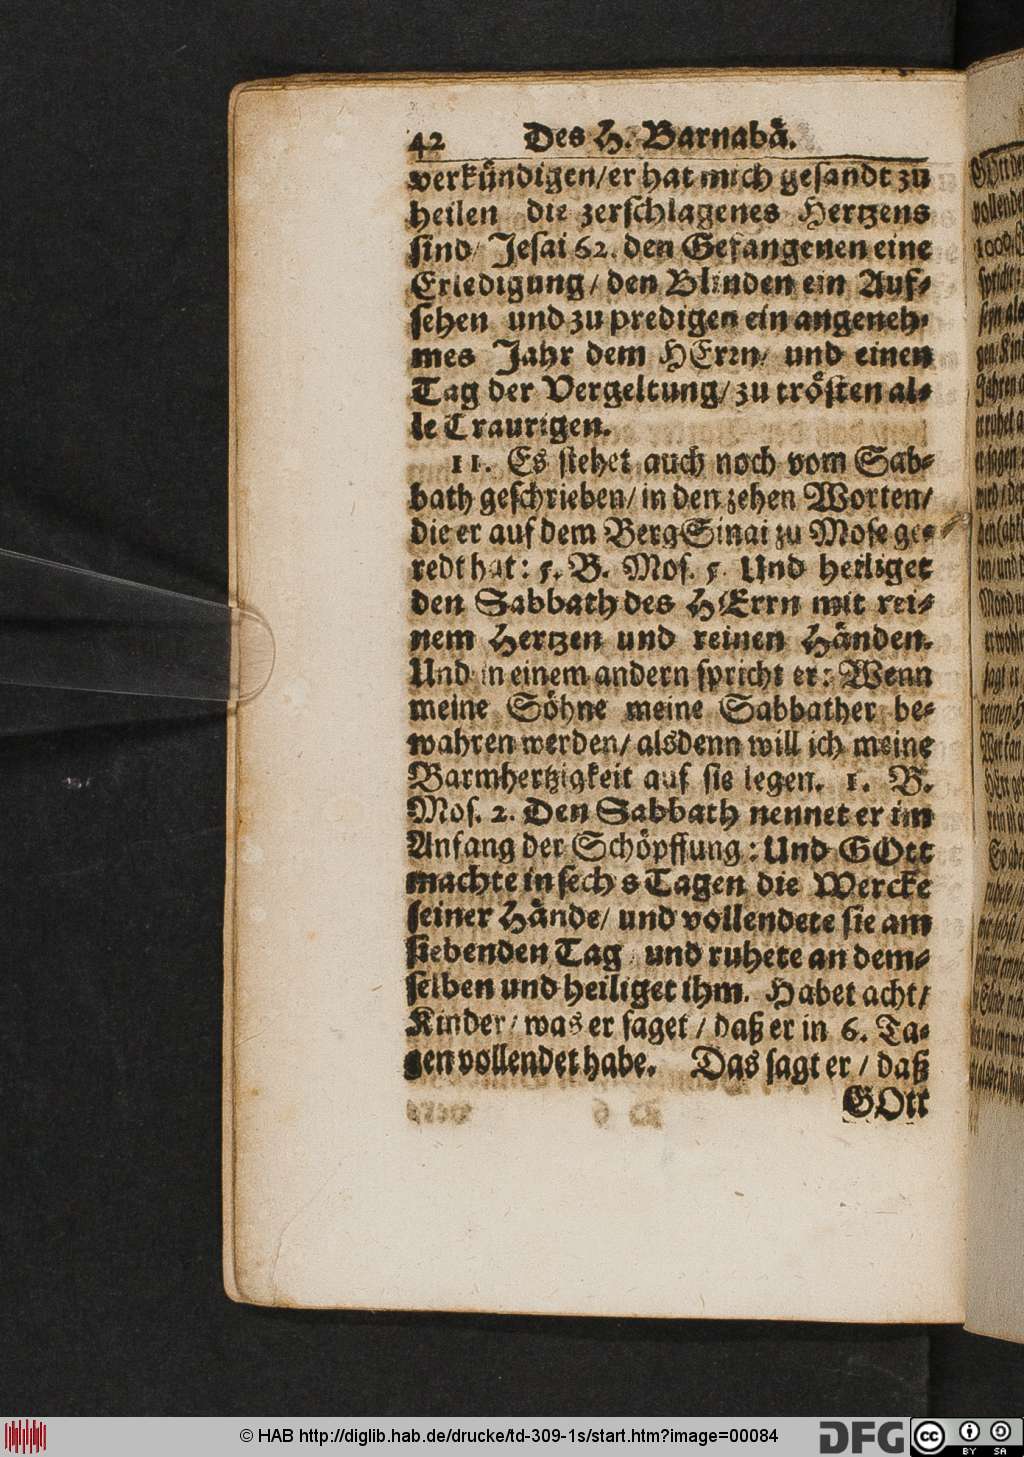 42 Des H. Barnabä.
verkündigen/er hat mich gesandt zu
heilen die zerschlagenes Hertzens
sind/ Jesai 62. den Gefangenen eine
Erledigung/ den Blinden ein Auf-
sehen und zu predigen ein angeneh-
mes Jahr dem HErrn/ und einen
Tag der Vergeltung/ zu trösten al-
le Traurigen.
11. Es stehet auch noch vom Sab-
bath geschrieben/ in den zehen Worten/
die er auf dem Berg Sinai zu Mose ge-
redt hat: 5. B. Mos. 5. Und heiliget
den Sabbath des HErrn mit rei-
nem Hertzen und reinen Händen.
Und in einem andern spricht er: Wenn
meine Söhne meine Sabbather be-
wahren werden/ alsdenn will ich meine
Barmhertzigkeit auf sie legen. 1. B.
Mos. 2. Den Sabbath nennet er im
Anfang der Schöpffung: Und GOtt
machte in sechs Tagen die Wercke
seiner Hände/ und vollendete sie am
siebenden Tag/ und ruhete an dem-
selben und heiliget ihm. Habet acht/
Kinder/ was er saget/ daß er in 6. Ta-
gen vollendet habe. Das sagt er/ daß
GOtt
© HAB http://diglib.hab.de/drucke/td-309-1s/start.htm?image=00084
DFG
cc BY SA